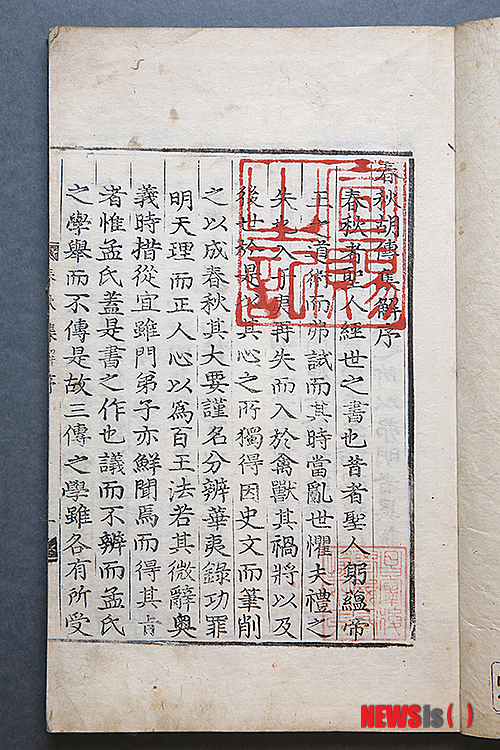 春秋胡傳集解序
春秋者聖人經世之書也昔者聖人躬蘊帝
王之道術而弗試而其時當亂世懼夫禮之
失也入于夷再失而入於禽獸其禍將以及
後世於是以其心之所獨得因史文而筆削
之以成春秋其大要謹名分辨華夷錄功罪
明天理而正人心以爲百王法若其微辭奧
義時措從宜雖門弟子亦鮮聞焉而得其㫖
者惟孟氏蓋是書之作也議而不辨而孟氏
之學舉而不傳是故三傳之學雖各有所受
宣賜之記
NEWSis( )